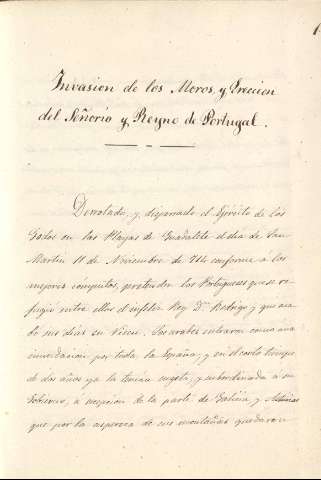 Invasion de los Moros, y Ereccion
del Señorio y Reyno de Portugal.
Derrotado, y disparsado el Ejército de los
Godos en las Playas de Guadalete el dia de San
Martin 11 de Noviembre de 714 conforme a los
mejores computos, pretenden los Portugueses que se re-
fugió entre ellos el infeliz Rey Dn. Rodrigo y que aca-
bó sus dias en Viseu. Los arabes entraron como una
inundacion por toda la España, y en el corto tiempo
de dos años ya la tenian sugeta, y subordinada á su
Gobierno, á excepcion de la parte de Galicia y Asturias
que por la aspereza de sus montañas quedáron